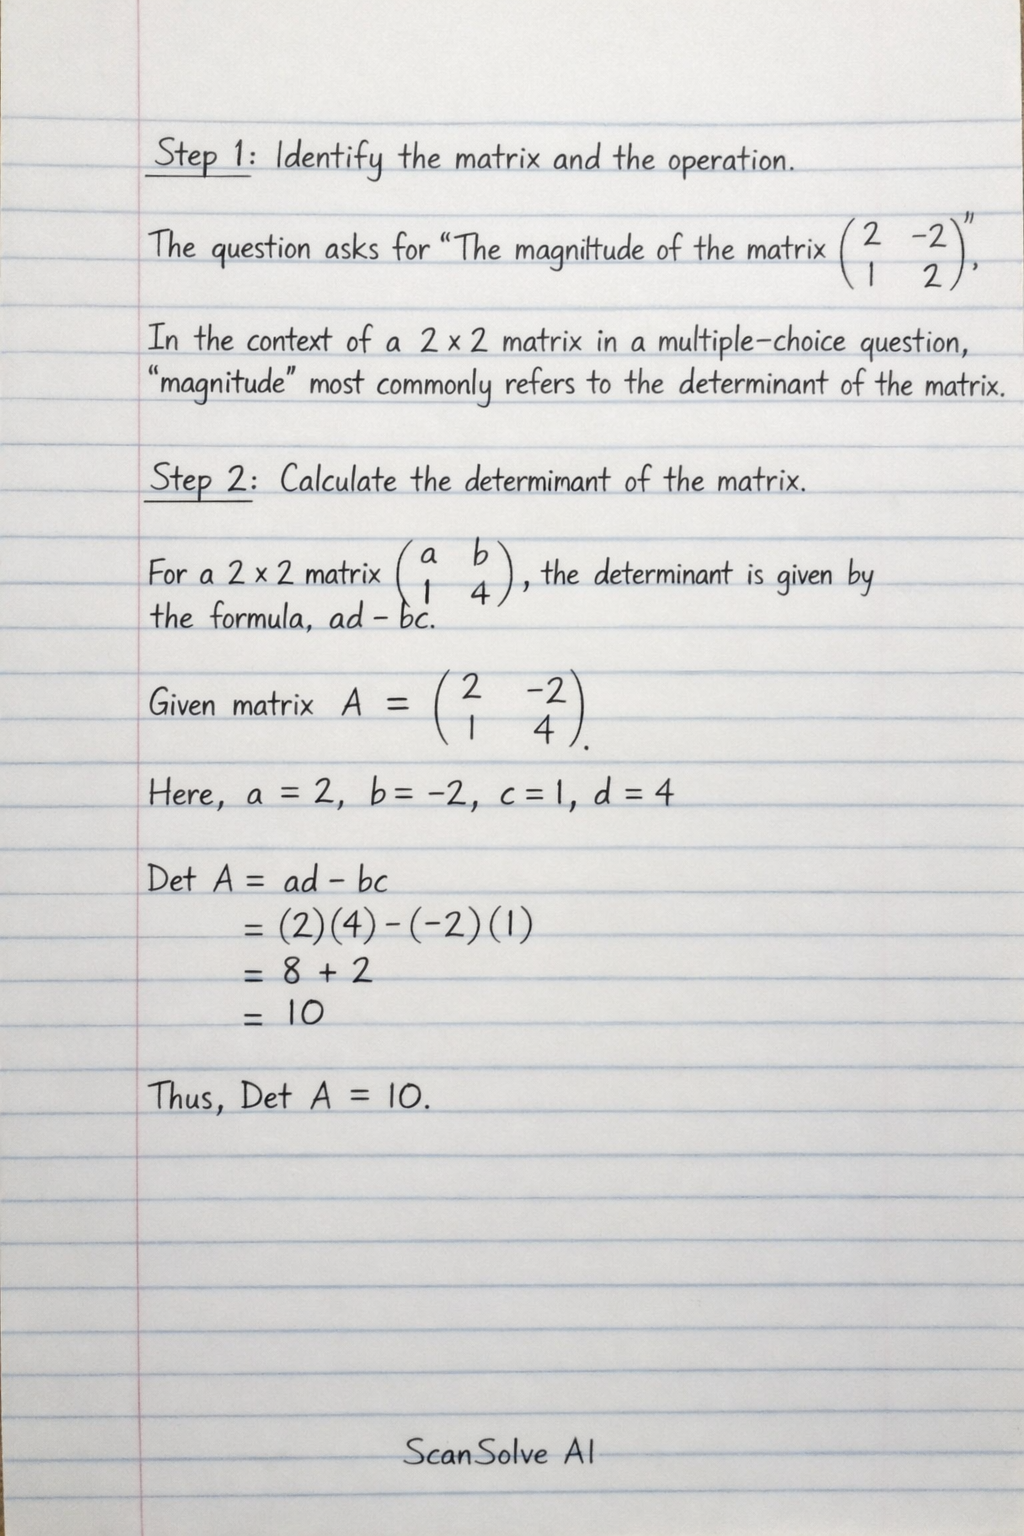 Step 1: Identify the matrix and the operation.
The question asks for “The magniltude of the matrix (2 -2
1 2)”,
In the context of a 2 × 2 matrix in a multiple-choice question,
“magnitude” most commonly refers to the determinant of the matrix.
Step 2: Calculate the determimant of the matrix.
For a 2 × 2 matrix (a b
1 4), the determinant is given by
the formula, ad - bc.
Given matrix A = (2 -2
1 4).
Here, a = 2, b = -2, c = 1, d = 4
Det A = ad - bc
= (2)(4) - (-2)(1)
= 8 + 2
= 10
Thus, Det A = 10.
ScanSolve AI